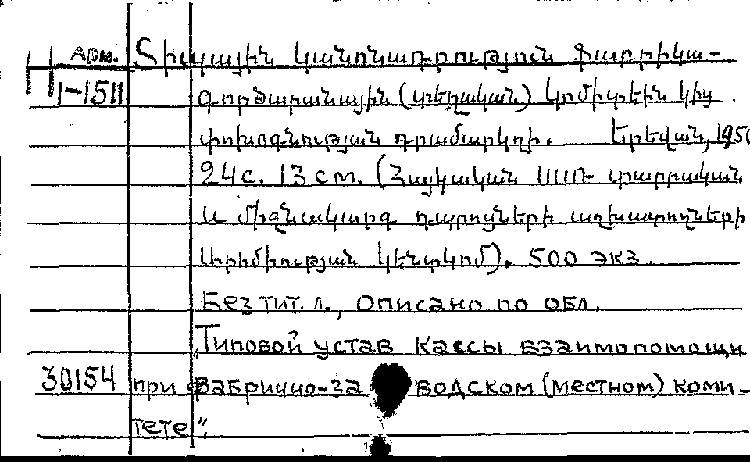 Арм. Տիպային կանոնադրություն ֆաբրիկա-
1-1511 գործարանային (տեղական) կոմիտեին կից
փոխօգնության դրամարկղի. Երեվան, 1950
24 с. 13 см. (Հայկական ՍՍՌ տարրական
և միջնակարգ դպրոցների աշխատողների
արհմիության կենտկոմ). 500 экз.
Без тит. л., описано по обл.
"Типовой устав кассы взаимопомощи
30154 при фабрично-заводском (местном) коми-
тете".